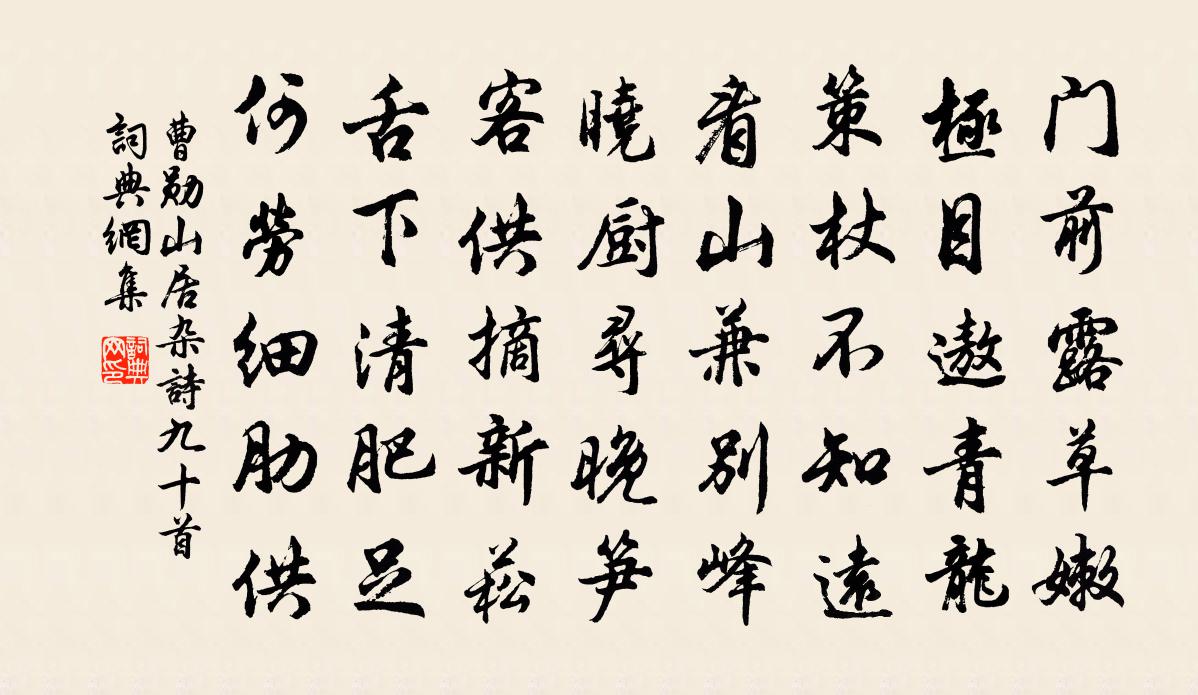 门前露草嫩
極目遨青龍
策杖不知遠
看山兼别峰
曉厨尋晚笋
客供摘新菘
舌下清肥足
何勞细肋供
曹勋山居杂詩九十首
詞典網集
詞典网印